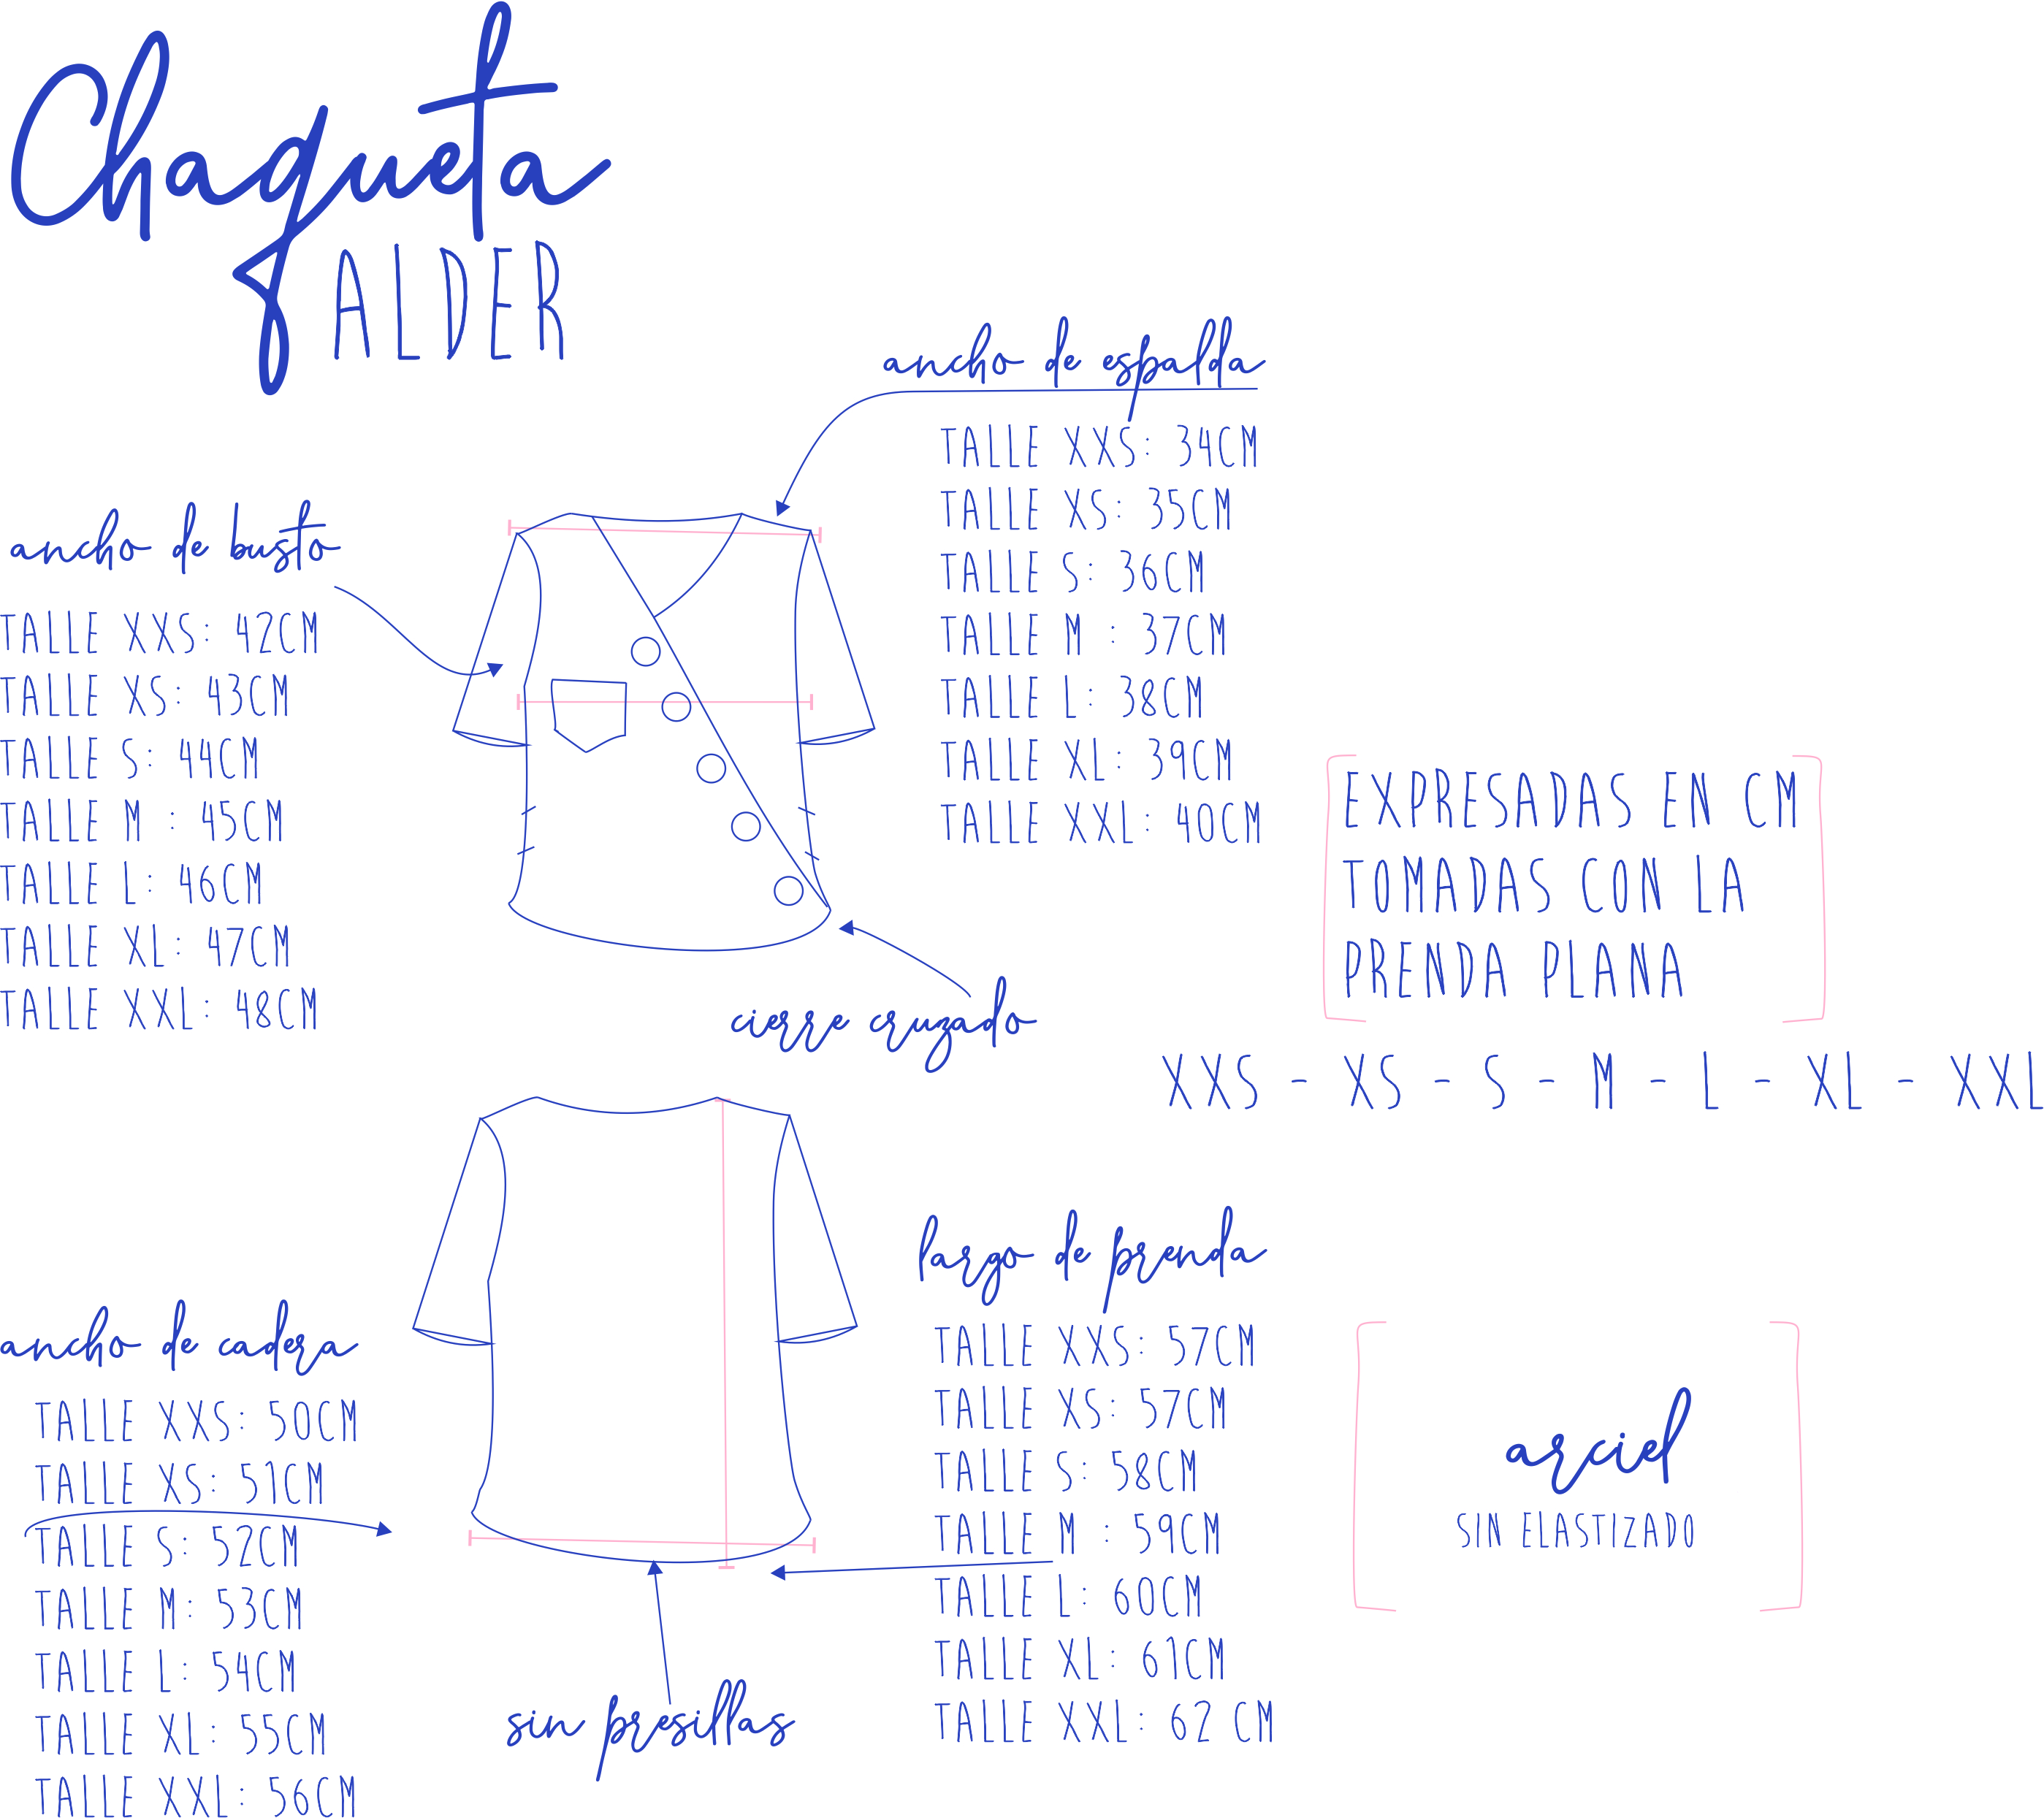 Chaqueta
ALDER
ancho de espalda
TALLE XXS: 34CM
TALLE XS: 35CM
TALLE S: 36CM
TALLE M : 37CM
TALLE L: 38CM
TALLE XL: 39CM
TALLE XXL: 40CM
ancho de busto
TALLE XXS: 42CM
TALLE XS: 43CM
TALLE S: 44CM
TALLE M : 45CM
TALLE L: 46CM
TALLE XL: 47CM
TALLE XXL: 48CM
EXPRESADAS EN CM
TOMADAS CON LA
PRENDA PLANA
cierre cruzado
XXS - XS - S - M - L - XL - XXL
largo de prenda
TALLE XXS: 57CM
TALLE XS: 57CM
TALLE S: 58CM
TALLE M : 59CM
TALLE L: 60CM
TALLE XL: 61CM
TALLE XXL: 62 CM
ancho de cadera
TALLE XXS: 50CM
TALLE XS: 51CM
TALLE S: 52CM
TALLE M: 53CM
TALLE L: 54CM
TALLE XL: 55CM
TALLE XXL: 56CM
arciel
SIN ELASTIZADO
sin presillas